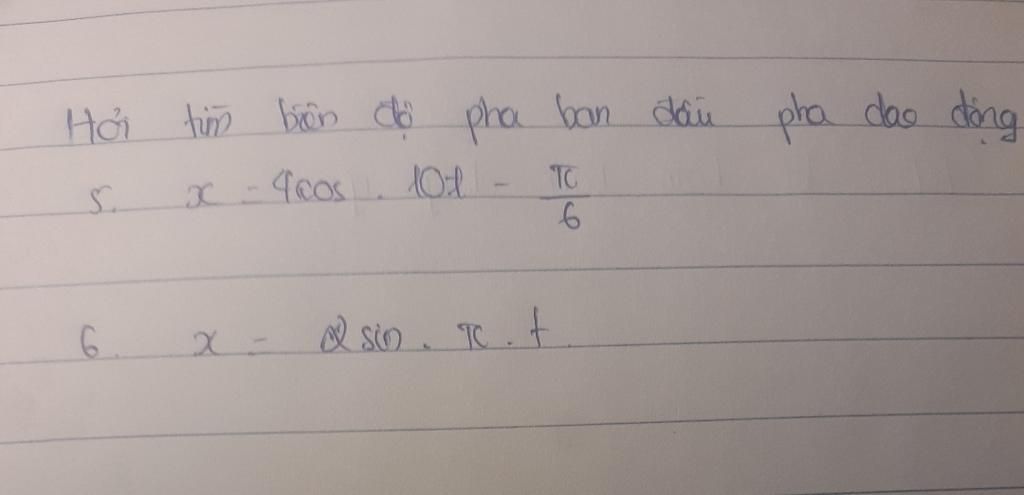 Hỏi tìm biên độ pha ban đầu pha dao động
5. x = 4cos . 10t - π/6
6. x = 2 sin . π . t